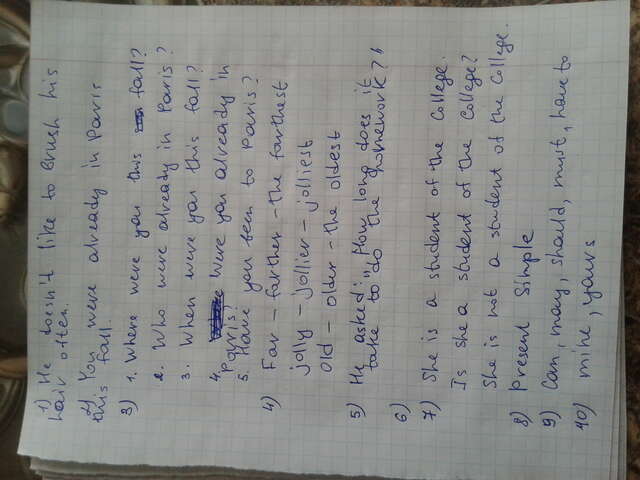 1) He doesn't like to brush his
hair often.
2). You were already in Paris
this fall.
3) 1. Where were you this fall?
2. Who were already in Paris?
3. When were you this fall?
4. Were you already in
Paris?
5. Have you been to Paris?
4) Far – farther – the farthest
jolly – jollier – jolliest
old – older – the oldest
5) He asked: „How long does it
take to do the homework?"
6)
7) She is a student of the College.
Is she a student of the College?
She is not a student of the College.
8) Present Simple
9) Can, may, should, must, have to
10) mine, yours